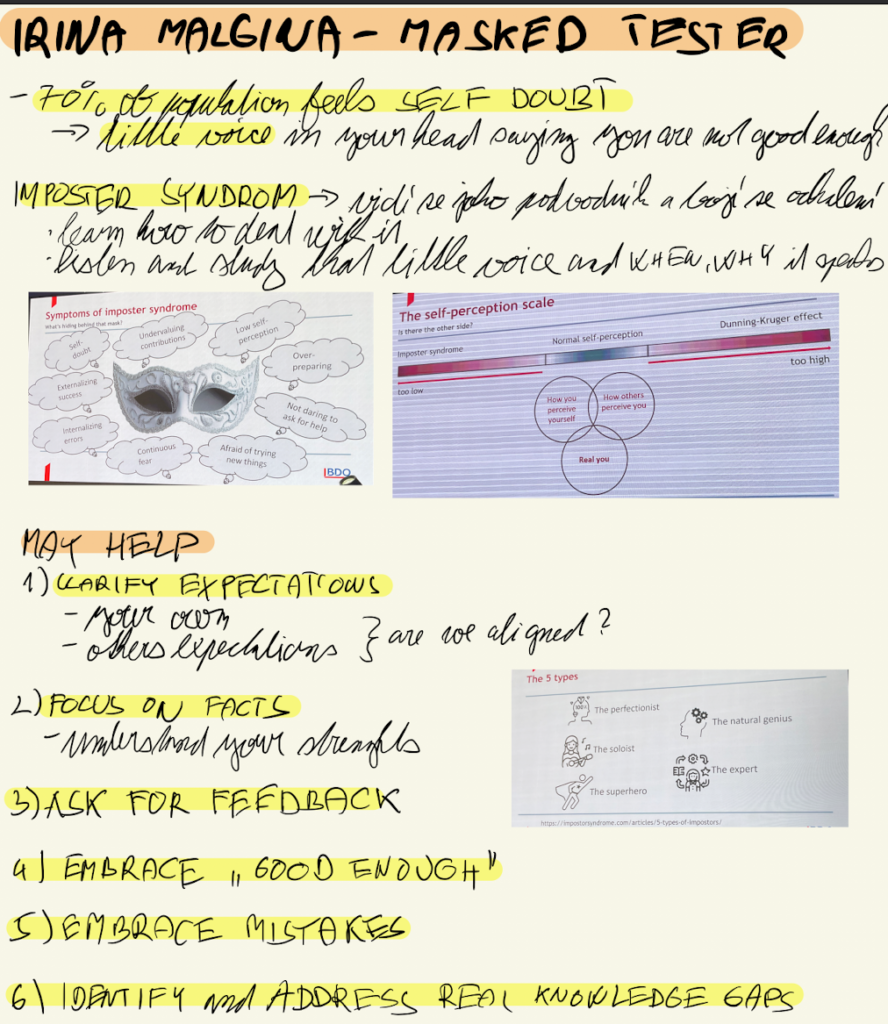 IRINA MALGINA - MASKED TESTER
- 70% of population feels SELF DOUBT
→ little voice in your head saying you are not good enough
IMPOSTER SYNDROM → vidí se jako podvodník a bojí se odhalení
· learn how to deal with it
· listen and study that little voice and WHEN, WHY it speaks
Symptoms of imposter syndrome
What's hiding behind that mask?
Self-doubt
Undervaluing contributions
Low self-perception
Over-preparing
Externalizing success
Not daring to ask for help
Internalizing errors
Continuous fear
Afraid of trying new things
BDO
The self-perception scale
Is there the other side?
Imposter syndrome
Normal self-perception
Dunning-Kruger effect
too low
too high
How you perceive yourself
How others perceive you
Real you
MAY HELP
1) CLARIFY EXPECTATIONS
- your own
- others expectations } are we aligned?
2) FOCUS ON FACTS
- understand your strenghts
The 5 types
The perfectionist
The natural genius
The soloist
The expert
The superhero
https://impostorsyndrome.com/articles/5-types-of-impostors/
3) ASK FOR FEEDBACK
4) EMBRACE „GOOD ENOUGH"
5) EMBRACE MISTAKES
6) IDENTIFY and ADDRESS REAL KNOWLEDGE GAPS